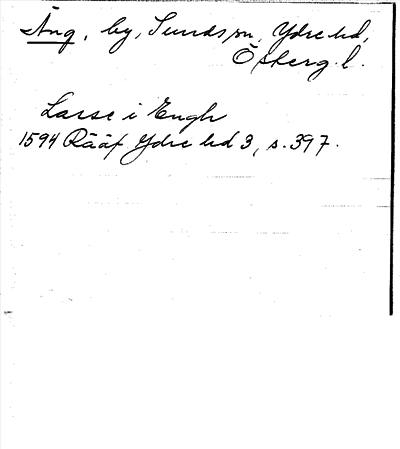 Äng, by, Sunds sn, Ydre hd,
Österg. l.
Lasse i Engh
1594 Rääf Ydre hd 3, s. 397.